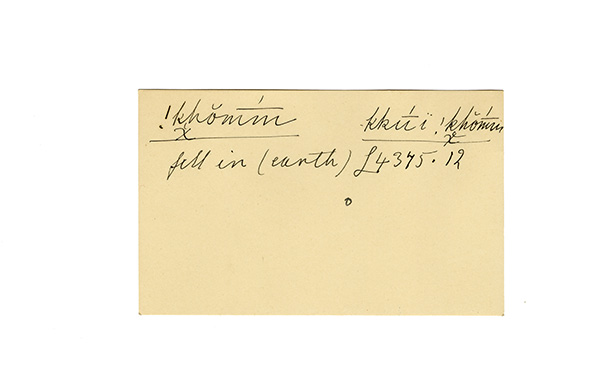 !khŏmm kkúï !khŏmm
fell in (earth) L4375.12